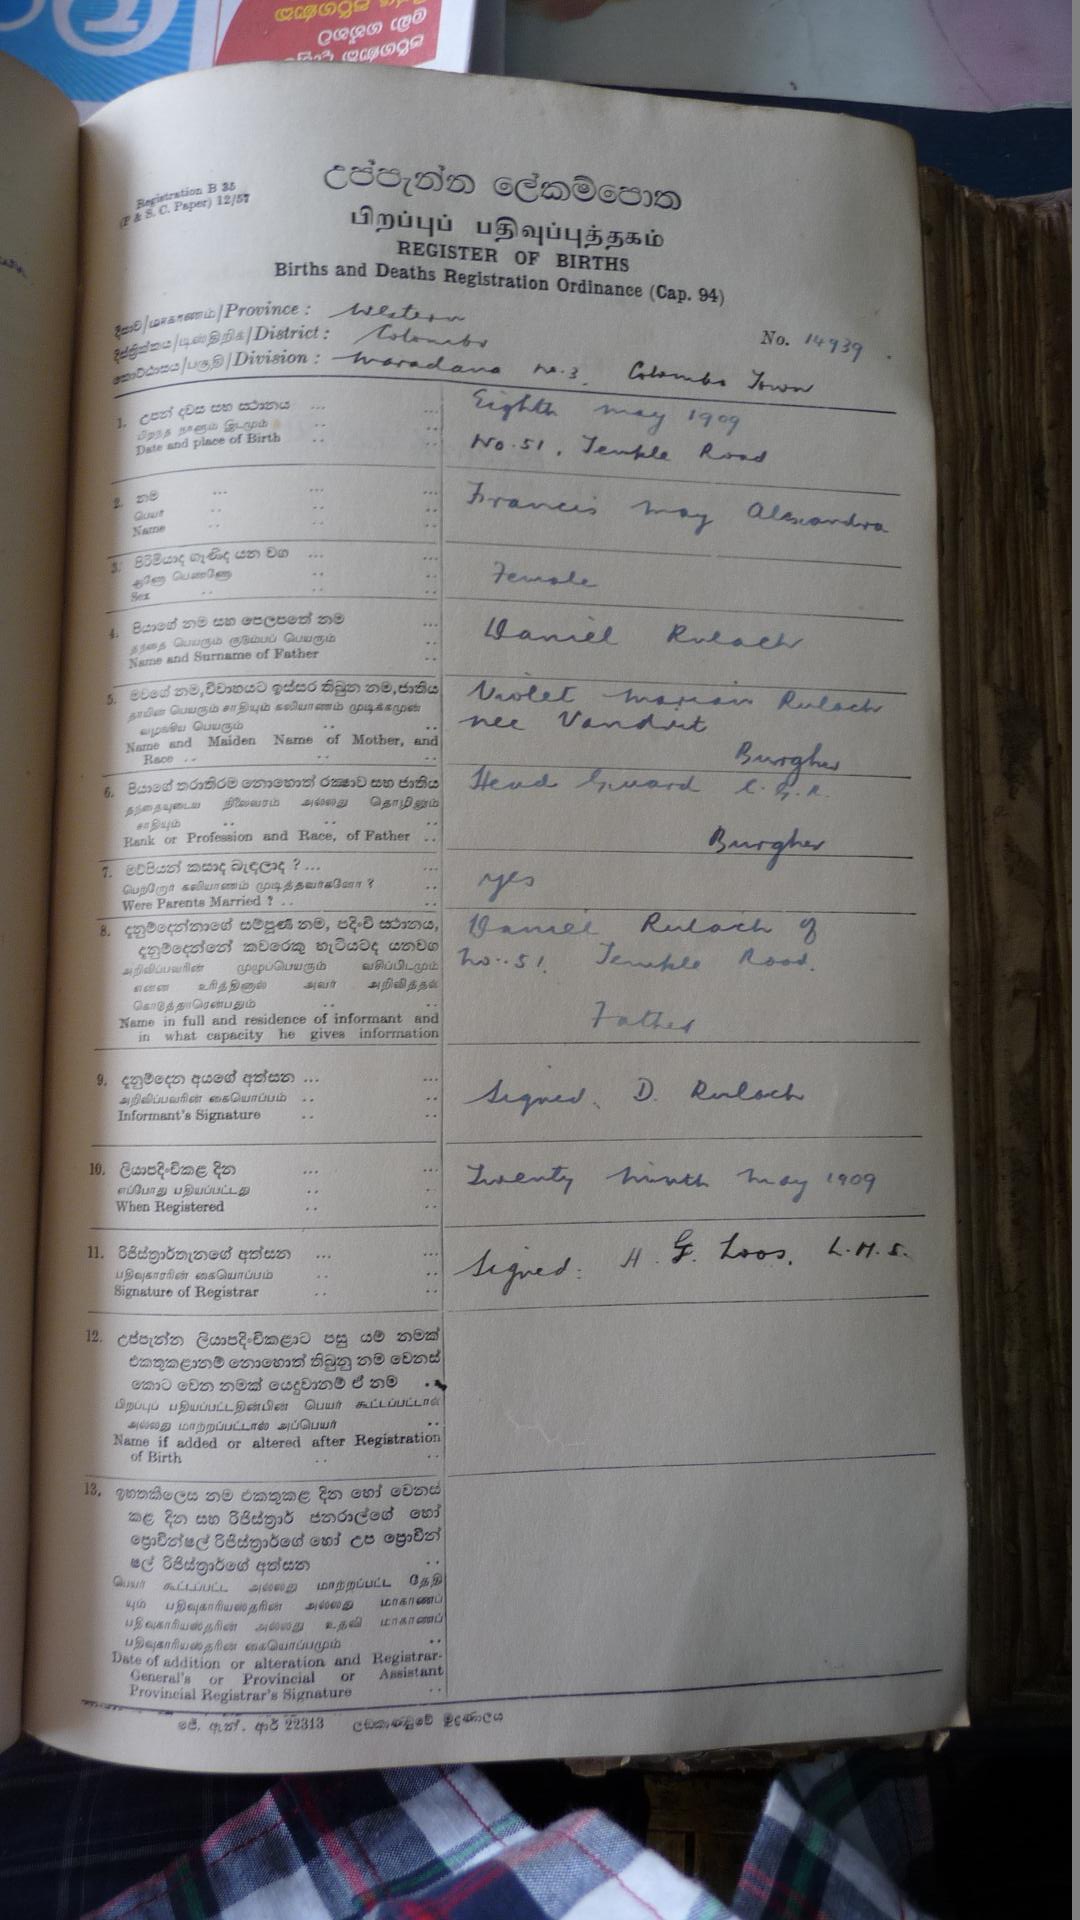 Registration B 35
(P & S. C. Paper) 12/57
උප්පැන්න ලේකම්පොත
பிறப்புப் பதிவுப்புத்தகம்
REGISTER OF BIRTHS
Births and Deaths Registration Ordinance (Cap. 94)
දිසාව/மாகாணம்/Province : Western
දිස්ත්‍රික්කය/டிஸ்திறிக்/District : Colombo
No. 14939
කොට්ඨාසය/பகுதி/Division : Maradana No. 3. Colombo Town
1. උපන් දවස සහ ස්ථානය ... ...
பிறந்த நாளும் இடமும் .. ..
Date and place of Birth .. ..
Eighth May 1909
No. 51, Temple Road
2. නම ... ... ...
பெயர் .. .. ..
Name .. .. ..
Francis May Alexandra
3. පිරිමියාද ගැණිද යන වග ... ...
ஆணோ பெண்ணோ .. ..
Sex .. .. ..
Female
4. පියාගේ නම සහ පෙලපතේ නම ...
தந்தை பெயரும் குடும்பப் பெயரும் ..
Name and Surname of Father ..
Daniel Rulach
5. මවගේ නම, විවාහයට ඉස්සර තිබුන නම, ජාතිය
தாயின் பெயரும் சாதியும் கலியாணம் முடிக்கமுன்
வழங்கிய பெயரும் .. ..
Name and Maiden Name of Mother, and
Race .. .. ..
Violet Marian Rulach
nee Vandrut
Burgher
6. පියාගේ තරාතිරම නොහොත් රක්ෂාව සහ ජාතිය
தந்தையுடைய நிலைவரம் அல்லது தொழிலும்
சாதியும் .. .. ..
Rank or Profession and Race, of Father ..
Head Guard C. G. R.
Burgher
7. මව්පියන් කසාද බැඳලාද ? ... ...
பெற்றோர் கலியாணம் முடித்தவர்களோ ? ..
Were Parents Married ? .. ..
yes
8. දැනුම්දෙන්නාගේ සම්පූර්ණ නම, පදිංචි ස්ථානය,
දැනුම්දෙන්නේ කවරෙකු හැටියටද යනවග
அறிவிப்பவரின் முழுப்பெயரும் வசிப்பிடமும்
என்ன உரித்தினால் அவர் அறிவித்தல்
கொடுத்தாரென்பதும் .. ..
Name in full and residence of informant and
in what capacity he gives information
Daniel Rulach of
No. 51, Temple Road.
Father
9. දැනුම්දෙන අයගේ අත්සන ... ...
அறிவிப்பவரின் கையொப்பம் .. ..
Informant's Signature .. ..
Signed. D. Rulach
10. ලියාපදිංචිකළ දින ... ...
எப்போது பதியப்பட்டது .. ..
When Registered .. ..
Twenty ninth May 1909
11. රිජිස්ත්‍රාර්තැනගේ අත්සන ... ...
பதிவுகாரரின் கையொப்பம் .. ..
Signature of Registrar .. ..
Signed: H. G. Loos, L.M.S.
12. උප්පැන්න ලියාපදිංචිකළාට පසු යම් නමක්
එකතුකළානම් නොහොත් තිබුනු නම වෙනස්
කොට වෙන නමක් යෙදුවානම් ඒ නම ..
பிறப்புப் பதியப்பட்டதின்பின் பெயர் கூட்டப்பட்டால்
அல்லது மாற்றப்பட்டால் அப்பெயர் ..
Name if added or altered after Registration
of Birth .. ..
13. ඉහතකීලෙස නම එකතුකළ දින හෝ වෙනස්
කළ දින සහ රිජිස්ත්‍රාර් ජනරාල්ගේ හෝ
ප්‍රොවින්ෂල් රිජිස්ත්‍රාර්ගේ හෝ උප ප්‍රොවින්
ෂල් රිජිස්ත්‍රාර්ගේ අත්සන ..
பெயர் கூட்டப்பட்ட அல்லது மாற்றப்பட்ட தேதி
யும் பதிவுகாரியஸ்தரின் அல்லது மாகாணப்
பதிவுகாரியஸ்தரின் அல்லது உதவி மாகாணப்
பதிவுகாரியஸ்தரின் கையொப்பமும் ..
Date of addition or alteration and Registrar-
General's or Provincial or Assistant
Provincial Registrar's Signature ..
ජේ. ඇන්. ආර් 22313 ලඞකාණ්ඩුවේ මුද්‍රණාලය